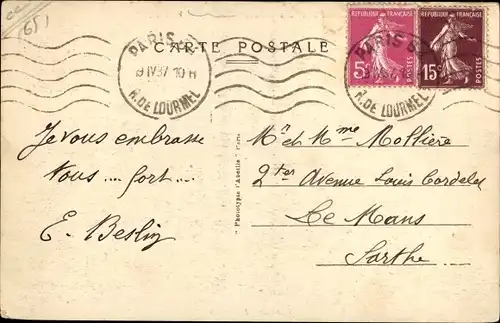 651
CARTE POSTALE
PARIS
9 IV 37 10 H
R. DE LOURMEL
REPUBLIQUE FRANÇAISE
5c
POSTES
REPUBLIQUE FRANÇAISE
15c
POSTES
PARIS
R. DE LOURMEL
Je vous embrasse
tous .... fort ....
E. Beslin
Mr et Mme Mollière
2ter Avenue Louis Cordelet
Le Mans
Sarthe
" Phototypie l'Abeille " Paris